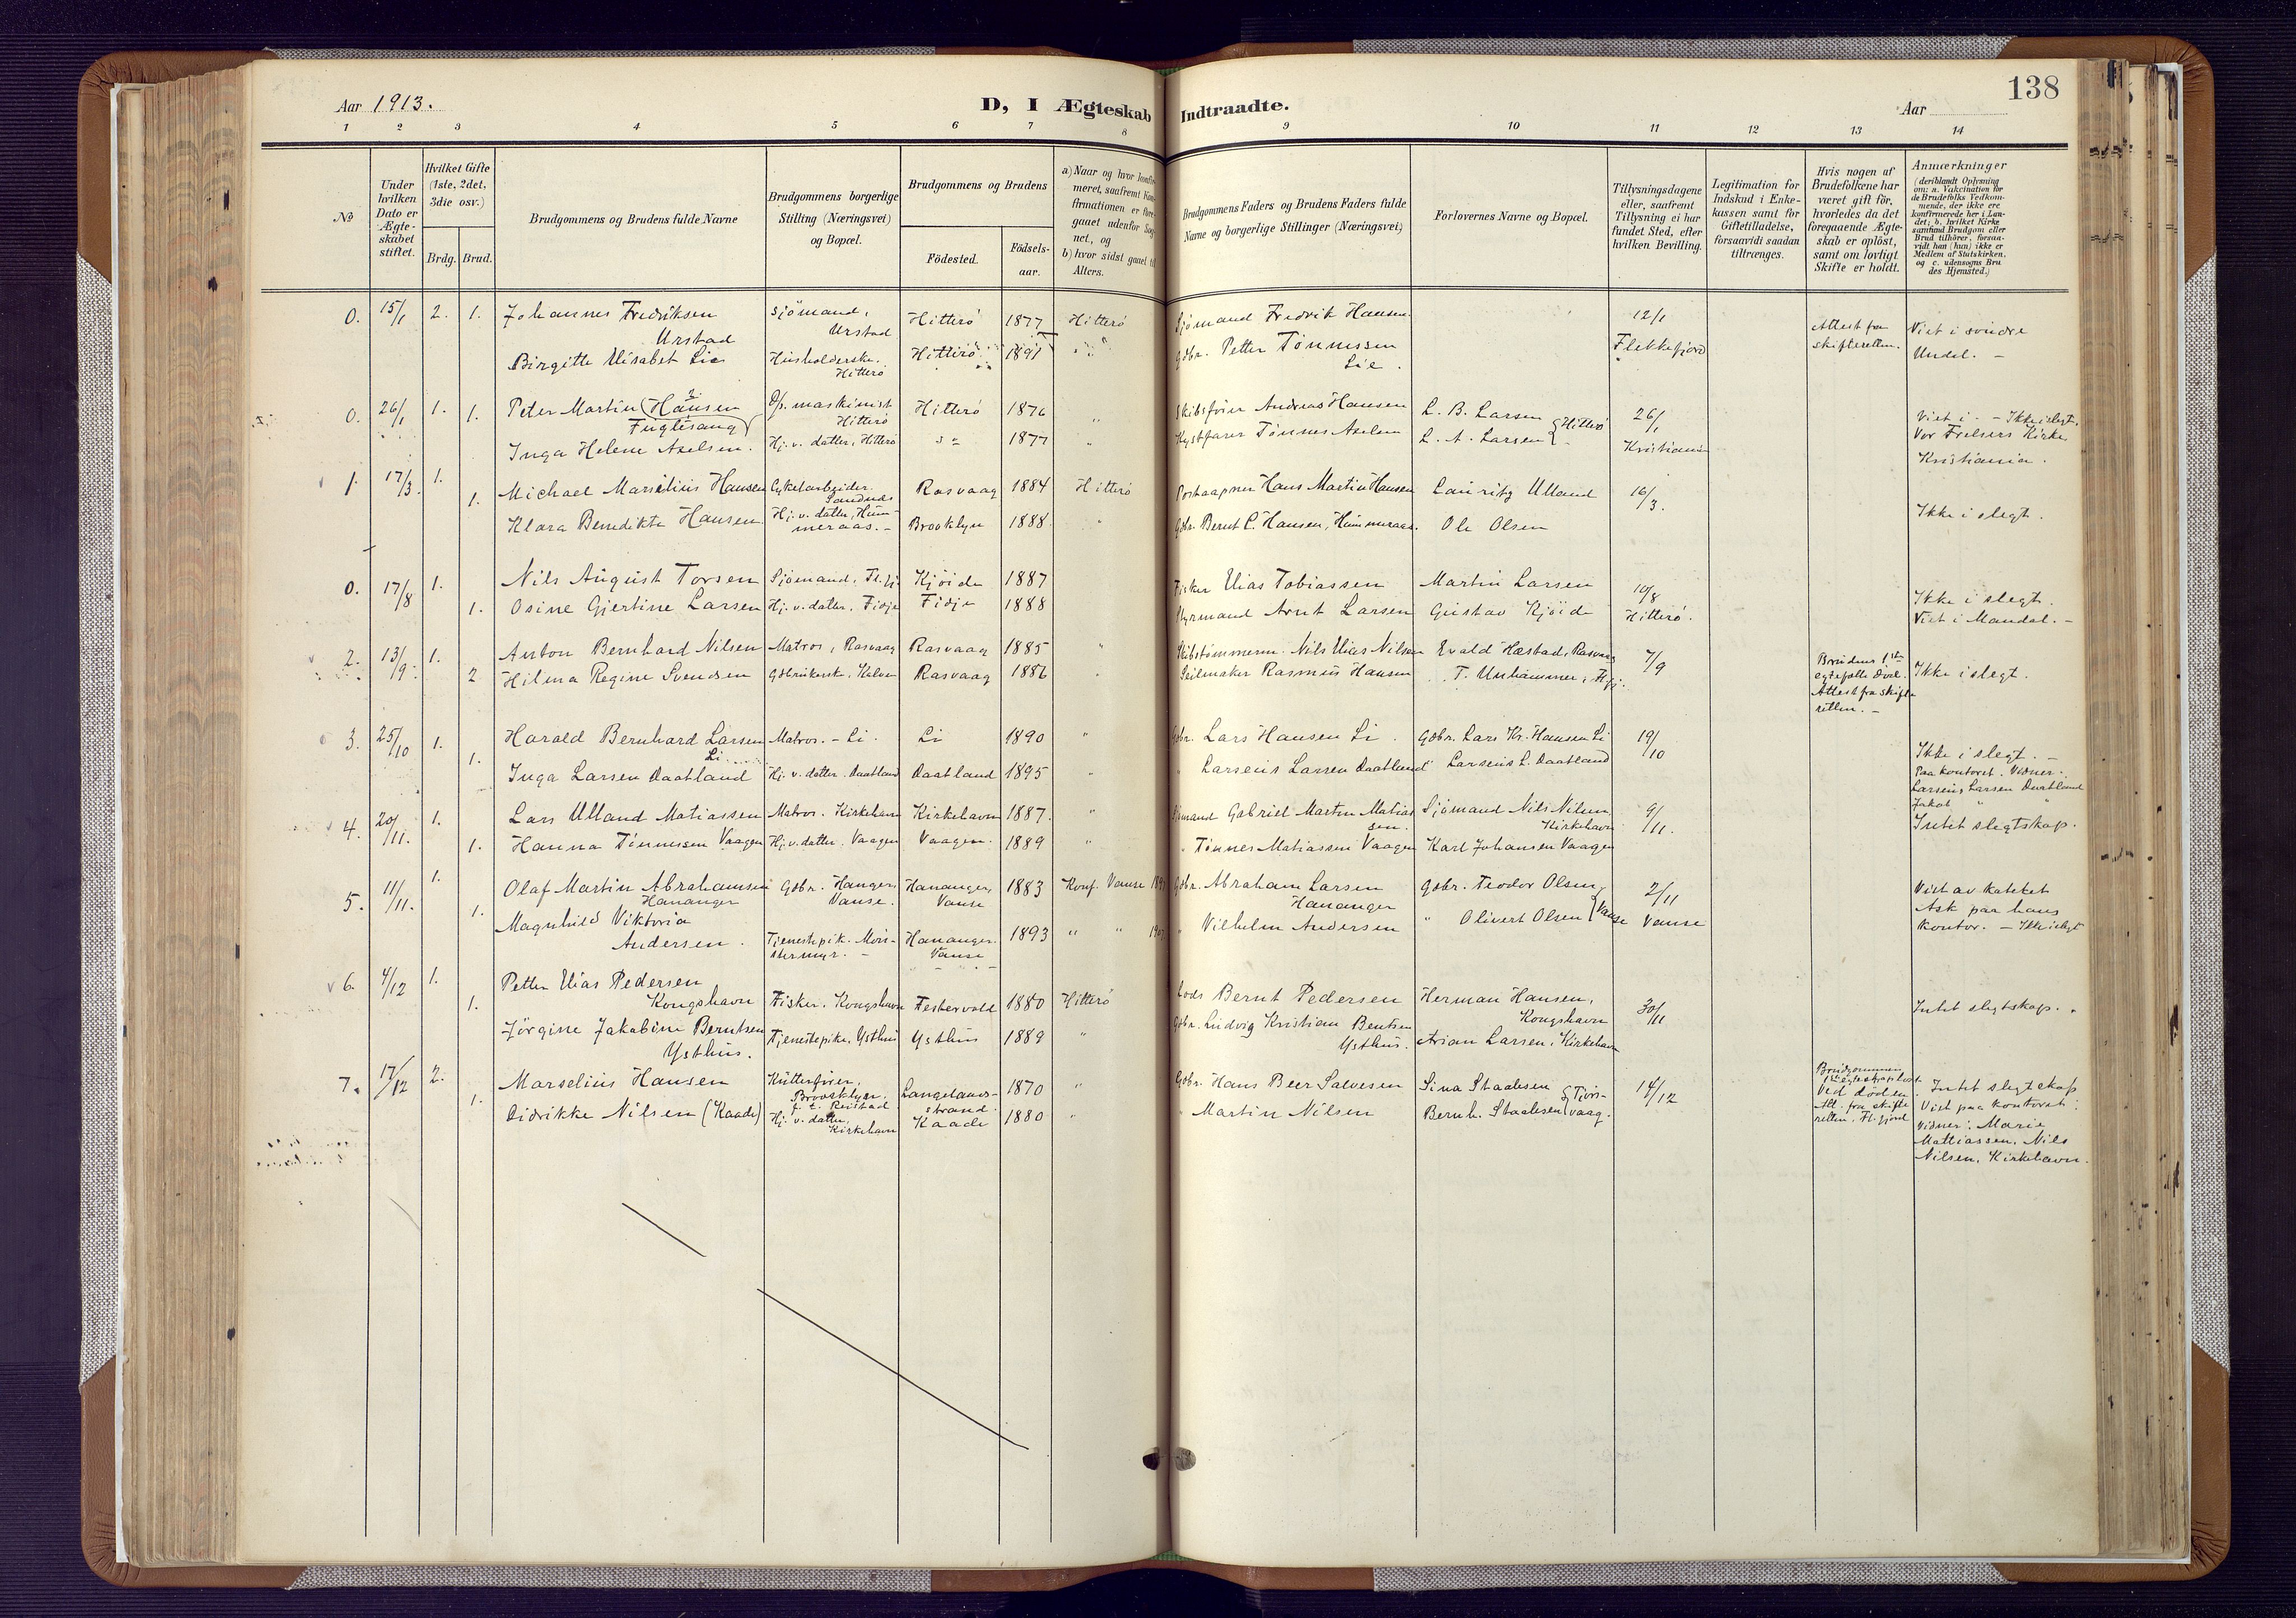 Aar 1913.
D, I Ægteskab Indtraadte.
Aar
138
1 2 3 4 5 6 7 8 9 10 11 12 13 14
No
Under hvilken Dato er Ægteskabet stiftet.
Hvilket Gifte (1ste, 2det, 3die osv.)
Brdg. Brud.
Brudgommens og Brudens fulde Navne
Brudgommens borgerlige Stilling (Næringsvei) og Bopæl.
Brudgommens og Brudens
Födested.
Födselsaar.
a) Naar og hvor konfirmeret, saafremt Konfirmationen er foregaaet udenfor Sognet, og
b) hvor sidst gaaet til Alters.
Brudgommens Faders og Brudens Faders fulde Navne og borgerlige Stillinger (Næringsvei)
Forlovernes Navne og Bopæl.
Tillysningsdagene eller, saafremt Tillysning ei har fundet Sted, efter hvilken Bevilling.
Legitimation for Indskud i Enkekassen samt for Giftetilladelse, forsaavidt saadan tiltrænges.
Hvis nogen af Brudefolkene har været gift för, hvorledes da det foregaaende Ægteskab er oplöst, samt om lovligt Skifte er holdt.
Anmærkninger
(deriblandt Oplysning om: a. Vakcination for de Brudefolks Vedkommende, der ikke ere konfirmerede her i Landet; b. hvilket Kirkesamfund Brudgom eller Brud tilhörer, forsaavidt han (hun) ikke er Medlem af Statskirken, og c. udensogns Brudes Hjemsted.)
0. 15/1 2. 1. Johannes Fredriksen Urstad Sjömand, Urstad Hitterö 1877 Hitterö Sjömand Fredrik Hansen 12/1 Attest fra skifteretten. Viet i søndre
Birgitte Elisabet Lie Husholderske. Hitterö Hitterö 1891 " Gdbr. Petter Tönnessen Lie. Flekkefjord Undal. -
0. 26/1 1. 1. Peter Martin (Hansen ?) Fuglesang D/s. maskinist Hitterö Hitterö 1876 " Skibsförer Andreas Hansen L. B. Larsen } Hitterö 26/1 Viet i - Ikke i slegt.
Inga Helene Axelsen. Hj. v. datter, Hitterö " 1877 " Kystfarer Tönnes Axelsen L. A. Larsen Kristiania Vor Frelsers Kirke Kristiania.
1. 17/3. 1. 1. Michael Marselius Hansen Cykelarbeider. Sandnes Rasvaag 1884 Hitterö Postaapner Hans Martin Hansen Lauritz Ulland 16/3. Ikke i slegt.
Klara Benedikte Hansen. Hj. v. datter, Hummeraas. - Brooklyn 1888. " Gdbr. Bernt C. Hansen, Hummeraas. Ole Olsen
0. 17/8 1. 1. Nils August Torsen Sjömand, Fl.fj. Kjöide 1887 Fisker Elias Tobiassen Martin Larsen 10/8 Ikke i slegt.
Osine Gjertine Larsen Hj. v. datter, Fidje Fidje 1888 Styrmand Arnt Larsen Gustav Kjöide Hitterö. Viet i Mandal. -
2. 13/9. 1. 2 Anton Bernhard Nilsen Matros, Rasvaag Rasvaag 1885 " Skibstömmerm. Nils Elias Nilsen Evald Hæstad, Rasvaag 7/9 Brudens 1ste egtefælle död. Attest fra skifteretten. - Ikke i slegt.
Hilma Regine Svendsen Gdbrukerske, Kalven Rasvaag 1886 " Seilmaker Rasmus Hansen T. Unhammer, Flfj.
3. 25/10 1. 1. Harald Bernhard Larsen Li Matros. - Li. Li 1890 " Gdbr. Lars Hansen Li. Gdbr. Lars Kr. Hansen Li 19/10 Ikke i slegt. -
Inga Larsen Daatland Hj. v. datter. Daatland Daatland 1895 " " Larseus Larsen Daatland Larseus L. Daatland Paa kontoret. Vidner: Larseus Larsen Daatland Jakob " "
4. 20/11. 1. 1. Lars Ulland Matiassen Matros. Kirkehavn Kirkehavn 1887. " Sjömand Gabriel Martin Matiassen. Sjömand Nils Nilsen Kirkehavn 9/11. Intet slegtskap.
Hanna Tönnessen Vaagen Hj. v. datter. Vaagen Vaagen. 1889 " " Tönnes Matiassen Vaagen Karl Johansen Vaagen
5. 11/11. 1. 1. Olaf Martin Abrahamsen Hananger Gdbr. Hanger, Vanse. Hananger, Vanse 1883 Konf. Vanse Gdbr. Abraham Larsen Hananger Gdbr. Teodor Olsen, 2/11 Viet av kateket
Magnhild Viktoria Andersen. Tjenestepik. Möinstermyr. - Hananger. Vanse 1893 " " " Vilhelm Andersen " Olivert Olsen } Vanse Vanse Ask paa hans kontor. - Ikke i slegt
6. 4/12 1. 1. Petter Elias Pedersen Kongshavn Fisker. Kongshavn Festervold 1880 Hitterö Lods Bernt Pedersen Herman Hansen, Kongshavn 30/11 Intet slegtskap.
Jörgine Jakobine Berntsen Ysthus. Tjenestepike, Ysthus Ysthus 1889 " Gdbr. Ludvig Kristian Bentsen Ysthus. Arian Larsen, Kirkehavn
7. 17/12 2. 1. Marselius Hansen Kutterförer, Broooklyn. f. t. Reistad Langelandsstrand. 1870 " Gdbr. Hans Beer Salvesen Sina Staalesen } Tjörsvaag. 14/12 Brudgommens 1ste egteskap löst ved döden. Att. fra skifteretten, Fl.fjord Intet slegtskap
Didrikke Nilsen (Kaade) Hj. v. datter, Kirkehavn Kaade 1880 " " Martin Nilsen Bernh. Staalesen Viet paa kontoret. Vidner: Marie Mattiassen, Nils Nilsen, Kirkehavn.